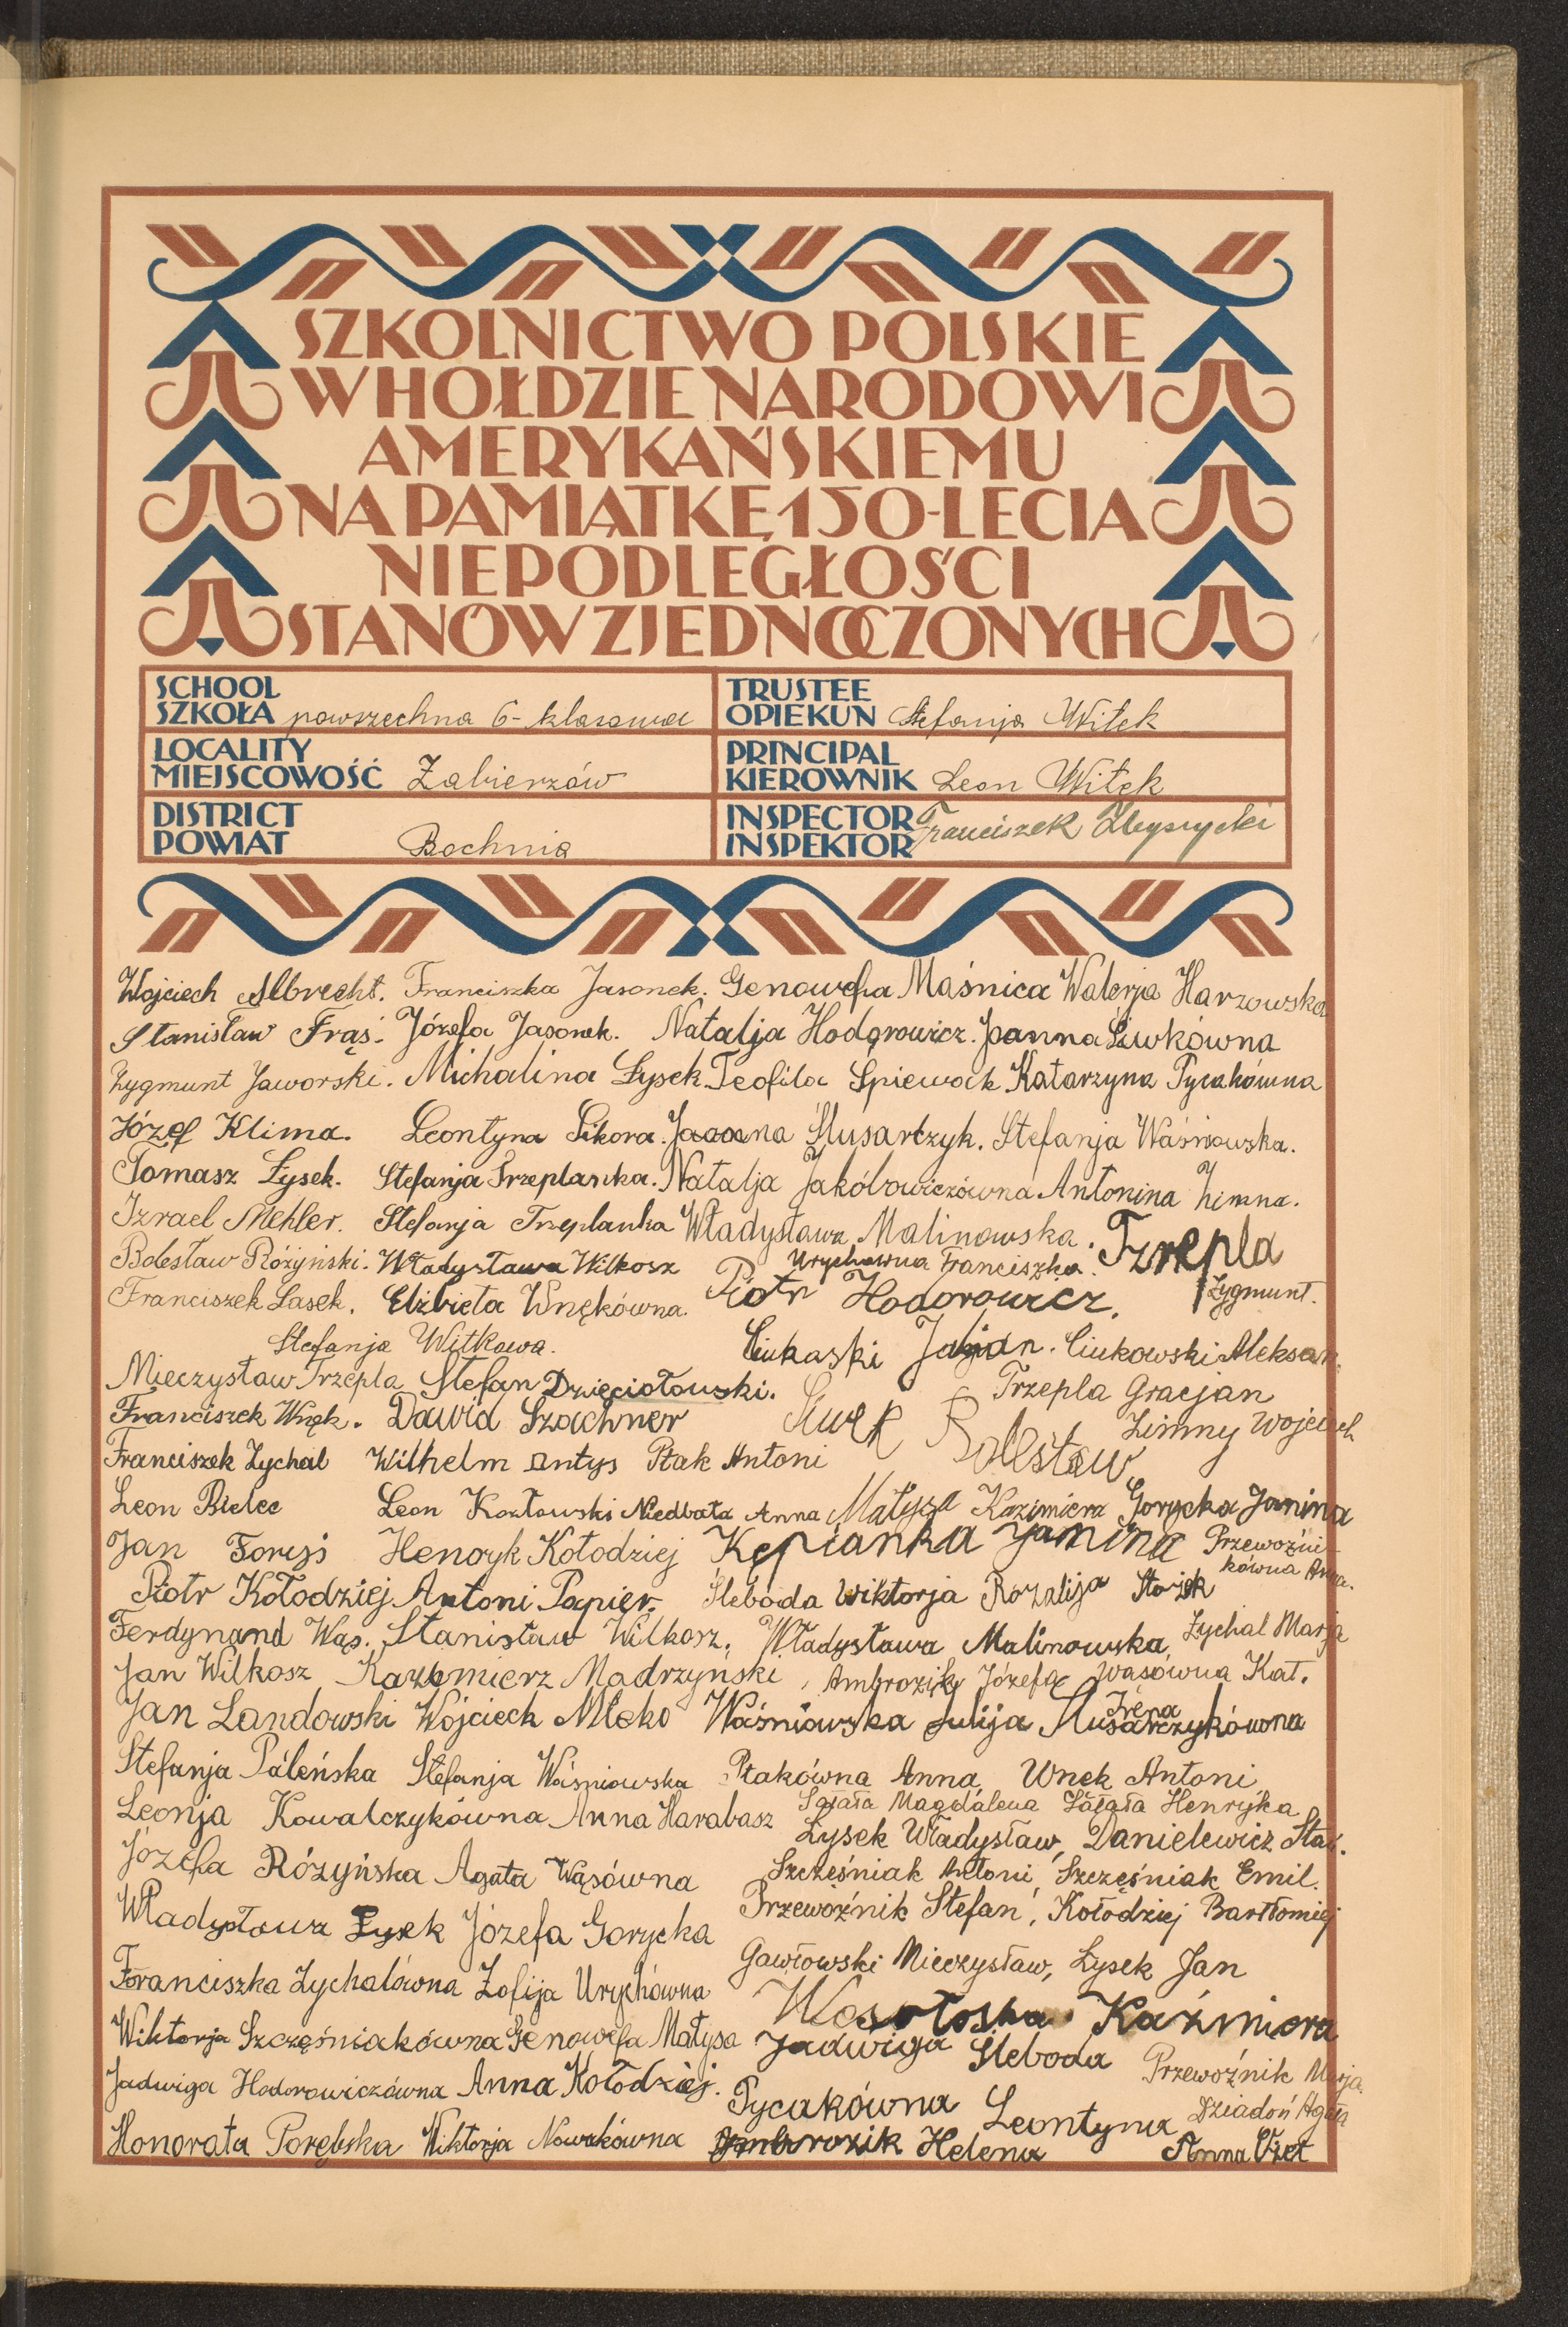 SZKOLNICTWO POLSKIE
W HOŁDZIE NARODOWI
AMERYKAŃSKIEMU
NA PAMIĄTKĘ 150-LECIA
NIEPODLEGŁOŚCI
STANÓW ZJEDNOCZONYCH
SCHOOL
SZKOŁA powszechna 6-klasowa
TRUSTEE
OPIEKUN Stefanja Witek
LOCALITY
MIEJSCOWOŚĆ Zabierzów
PRINCIPAL
KIEROWNIK Leon Witek
DISTRICT
POWIAT Bochnia
INSPECTOR
INSPEKTOR Franciszek
Wojciech Albrecht. Franciszka Jasonek. Genowefa Maśnica Walerja Harzowska
Stanisław Frąś. Józefa Jasonek. Natalja Hodorowicz. Joanna Siwkówna
Zygmunt Jaworski. Michalina Łysek. Teofila Śpiewak Katarzyna Pycakówna
Józef Klima. Leontyna Sikora. Joanna Ślusarczyk. Stefanja Waśniowska.
Tomasz Łysek. Stefanja Trzeplanka. Natalja Jakóbowiczówna Antonina Zimna.
Izrael Mehler. Stefanja Trzeplanka Władysława Malinowska. Trzepla
Bolesław Różyński. Władysława Wilkosz Urychówna Franciszka.
Franciszek Lasek. Elżbieta Wnękówna. Piotr Hodorowicz. Zygmunt.
Stefanja Witkowa. Julian. Ciukowski Aleksan.
Mieczysław Trzepla Stefan Dzięciołowski. Trzepla Gracjan
Franciszek Wnęk. Dawid Szachner Siwek Bolesław Zimny Wojciech
Franciszek Zychal Wilhelm Antys Ptak Antoni
Leon Bielec Leon Kozłowski Niedbała Anna Małysa Kazimiera Gorycka Janina
Jan Foryś Henryk Kołodziej Kępianka Janina Przewoźni-
kówna Anna.
Piotr Kołodziej Antoni Papier. Śleboda Wiktorja Rozalija
Ferdynand Wąs. Stanisław Wilkosz. Władysława Malinowska, Zychal Marja
Jan Wilkosz Kazimierz Mądrzyński, Ambrozik Józefa Wąsówna Kat.
Jan Landowski Wojciech Mleko Waśniowska Julija Irena Ślusarczykówna
Stefanja Paleńska Stefanja Waśniowska Ptakówna Anna Wnek Antoni
Leonja Kowalczykówna Anna Harabasz Sałata Magdalena Sałata Henryka
Łysek Władysław, Danielewicz Stan.
Józefa Różyńska Agata Wąsówna Szczęśniak Antoni, Szczęśniak Emil.
Władysława Łysek Józefa Gorycka Przewoźnik Stefan, Kołodziej Bartłomiej
Gawłowski Mieczysław, Łysek Jan
Franciszka Zychalówna Zofija Urychówna
Kaźmiera
Wiktorja Szczęśniakówna Genowefa Małysa Jadwiga Śleboda Przewoźnik Marja
Jadwiga Hodorowiczówna Anna Kołodziej. Pycakówna Leontyna Dziadoń Agata
Honorata Porębska Wiktorja Nowakówna Ambrozik Helena Anna